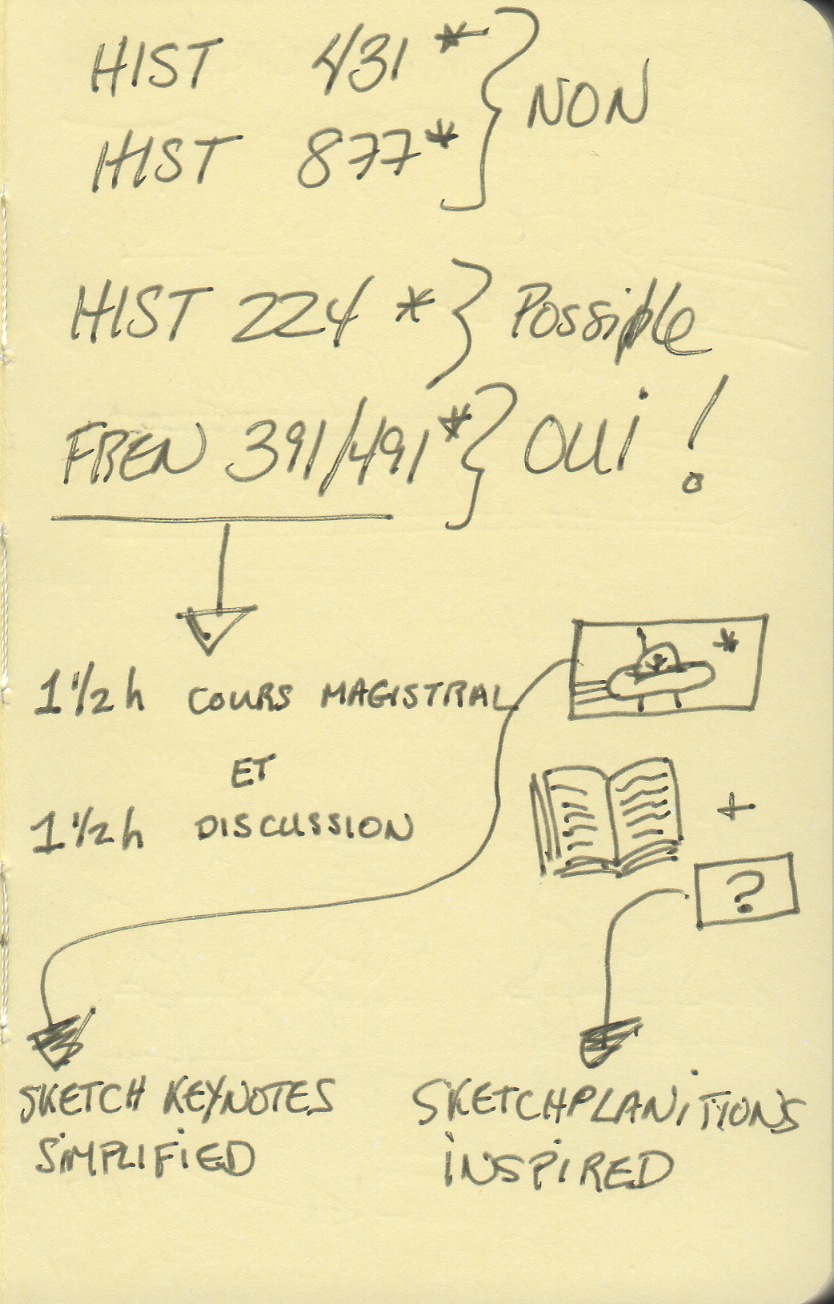 HIST 431 * } NON
HIST 877 *
HIST 224 * } Possible
FREN 391/491 * } OUI !
1 1/2 h COURS MAGISTRAL
ET
1 1/2 h DISCUSSION
+
?
SKETCH KEYNOTES
SIMPLIFIED
SKETCHPLANITIONS
INSPIRED